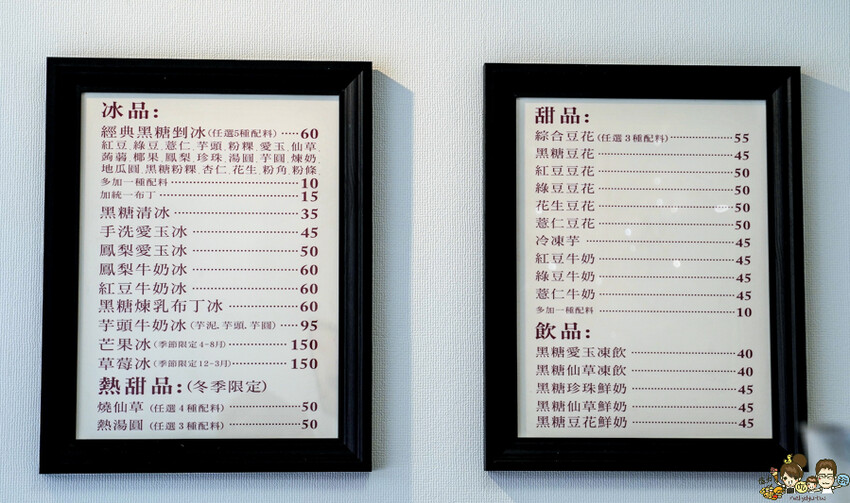 冰品:
經典黑糖剉冰(任選5種配料)·····60
紅豆、綠豆、薏仁、芋頭、粉粿、愛玉、仙草、
蒟蒻、椰果、鳳梨、珍珠、湯圓、芋圓、煉奶、
地瓜圓、黑糖粉粿、杏仁、花生、粉角、粉條
多加一種配料··········10
加統一布丁··········15
黑糖清冰··········35
手洗愛玉冰··········45
鳳梨愛玉冰··········50
鳳梨牛奶冰··········60
紅豆牛奶冰··········60
黑糖煉乳布丁冰··········60
芋頭牛奶冰(芋泥,芋頭,芋圓)····95
芒果冰(季節限定4-8月)··········150
草莓冰(季節限定12-3月)··········150
熱甜品:(冬季限定)
燒仙草(任選4種配料)··········50
熱湯圓(任選3種配料)··········50
甜品:
綜合豆花(任選3種配料)··········55
黑糖豆花··········45
紅豆豆花··········50
綠豆豆花··········50
花生豆花··········50
薏仁豆花··········50
冷凍芋··········45
紅豆牛奶··········45
綠豆牛奶··········45
薏仁牛奶··········45
多加一種配料··········10
飲品:
黑糖愛玉凍飲··········40
黑糖仙草凍飲··········40
黑糖珍珠鮮奶··········45
黑糖仙草鮮奶··········45
黑糖豆花鮮奶··········45